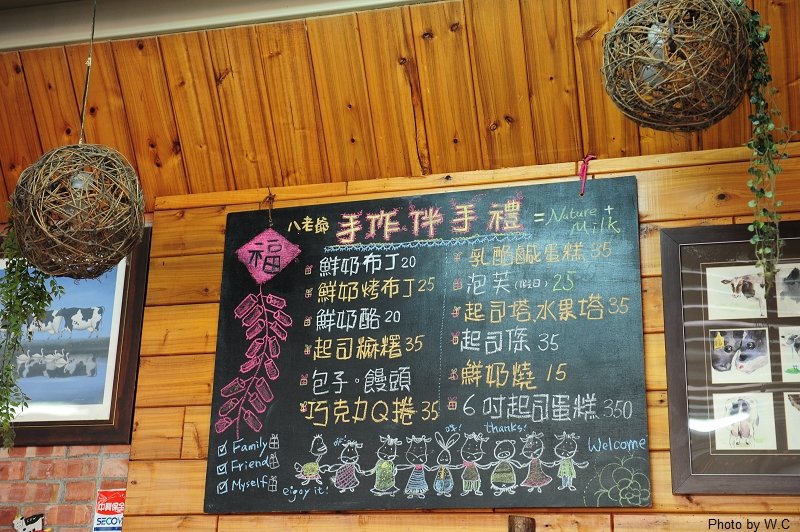 八老爺 手作伴手禮 = Nature + Milk
福
鮮奶布丁 20
鮮奶烤布丁 25
鮮奶酪 20
起司麻糬 35
包子。饅頭
巧克力Q捲 35
乳酪鹹蛋糕 35
泡芙(假日) 25
起司塔.水果塔 35
起司條 35
鮮奶燒 15
6吋起司蛋糕 350
Family
Friend
Myself
enjoy it!
oh!
oh!
thanks!
Welcome
中興保全
SECOM
Photo by W.C